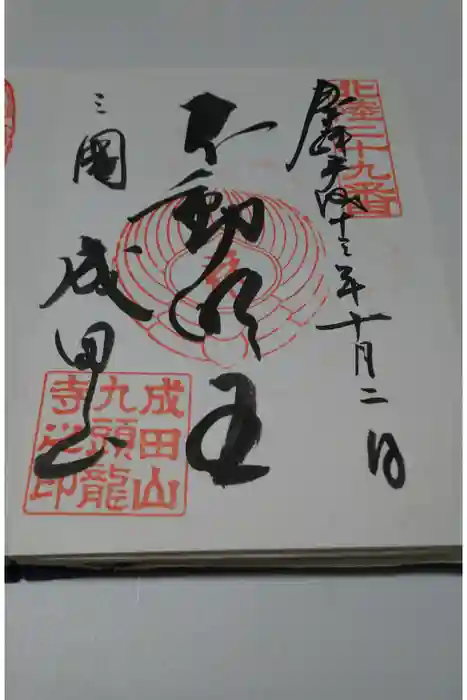 北陸二十九番
奉拝 平成十三年十月二日
不動明王
三國 成田山
成田山
九頭龍
寺之印